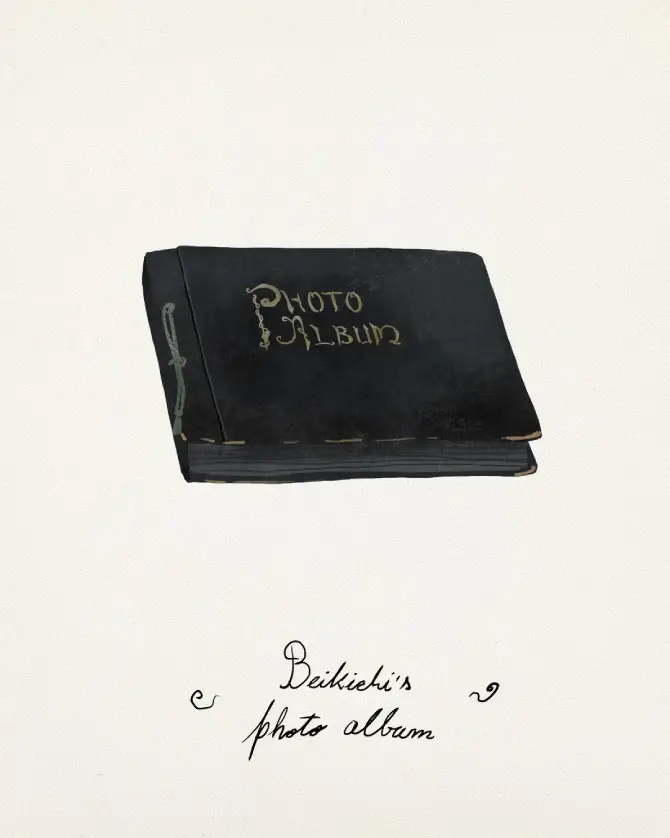 PHOTO
ALBUM
Beikichi's
photo album